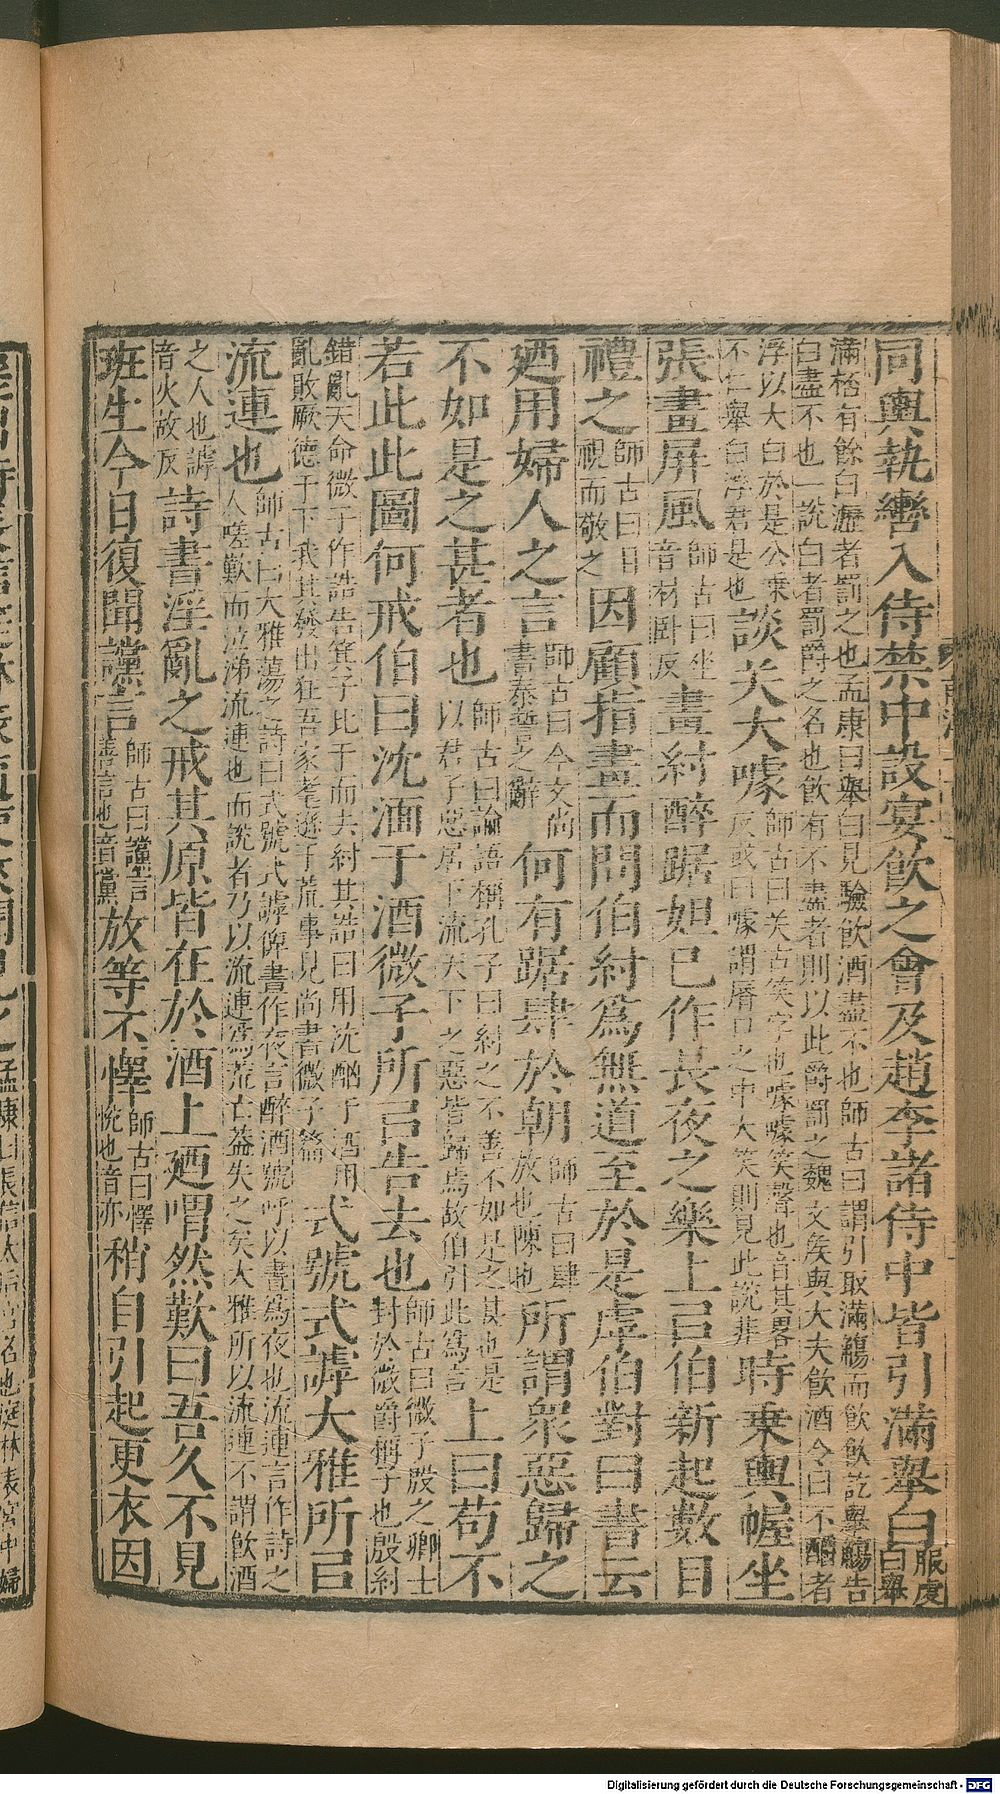 同輿執轡入侍禁中設宴飲之會及趙李諸侍中皆引滿舉白服虔曰舉
滿桮有餘白瀝者罰之也孟康曰舉白見驗飲酒盡不也師古曰謂引取滿觴而飲飲訖舉觴告
白盡不也一說白者罰爵之名也飲有不盡者則以此爵罰之魏文矦與大夫飲酒令曰不釂者
浮以大白於是公乗
不仁舉白浮君是也談关大噱師古曰关古笑字也噱噱笑聲也音其畧
反或曰噱謂脣口之中大笑則見此說非時乗輿幄坐
張畫屏風師古曰坐
音材卧反畫紂醉踞妲己作長夜之樂上㠯伯新起數目
禮之師古曰目
視而敬之因顧指畫而問伯紂爲無道至於是虖伯對曰書云
廼用婦人之言師古曰今文尚
書泰誓之辭何有踞肆於朝師古曰肆
放也陳也所謂衆惡歸之
不如是之甚者也師古曰論語稱孔子曰紂之不善不如是之甚也是
以君子惡居下流天下之惡皆歸焉故伯引此為言上曰苟不
若此此圖何戒伯曰沈湎于酒微子所㠯告去也師古曰微子殷之卿士
封於微爵稱子也殷紂
錯亂天命微子作誥告箕子比干而去紂其誥曰用沈酗于酒用
亂敗厥德于下我其發出狂吾家耄遜于荒事見尚書微子篇式號式謼大雅所㠯
流連也師古曰大雅蕩之詩曰式號式謼俾晝作夜言醉酒號呼以晝為夜也流連言作詩之
人嗟歎而泣涕流連也而說者乃以流連爲荒亡蓋失之矣大雅所以流連不謂飲酒
之人也謼
音火故反詩書淫亂之戒其原皆在於酒上廼喟然歎曰吾久不見
班生今日復聞讜言師古曰讜言
善言也音黨放等不懌師古曰懌
悅也音亦稍自引起更衣因
孟康曰長信太后宮名也庭林表宮中婦
Digitalisierung gefördert durch die Deutsche Forschungsgemeinschaft - DFG